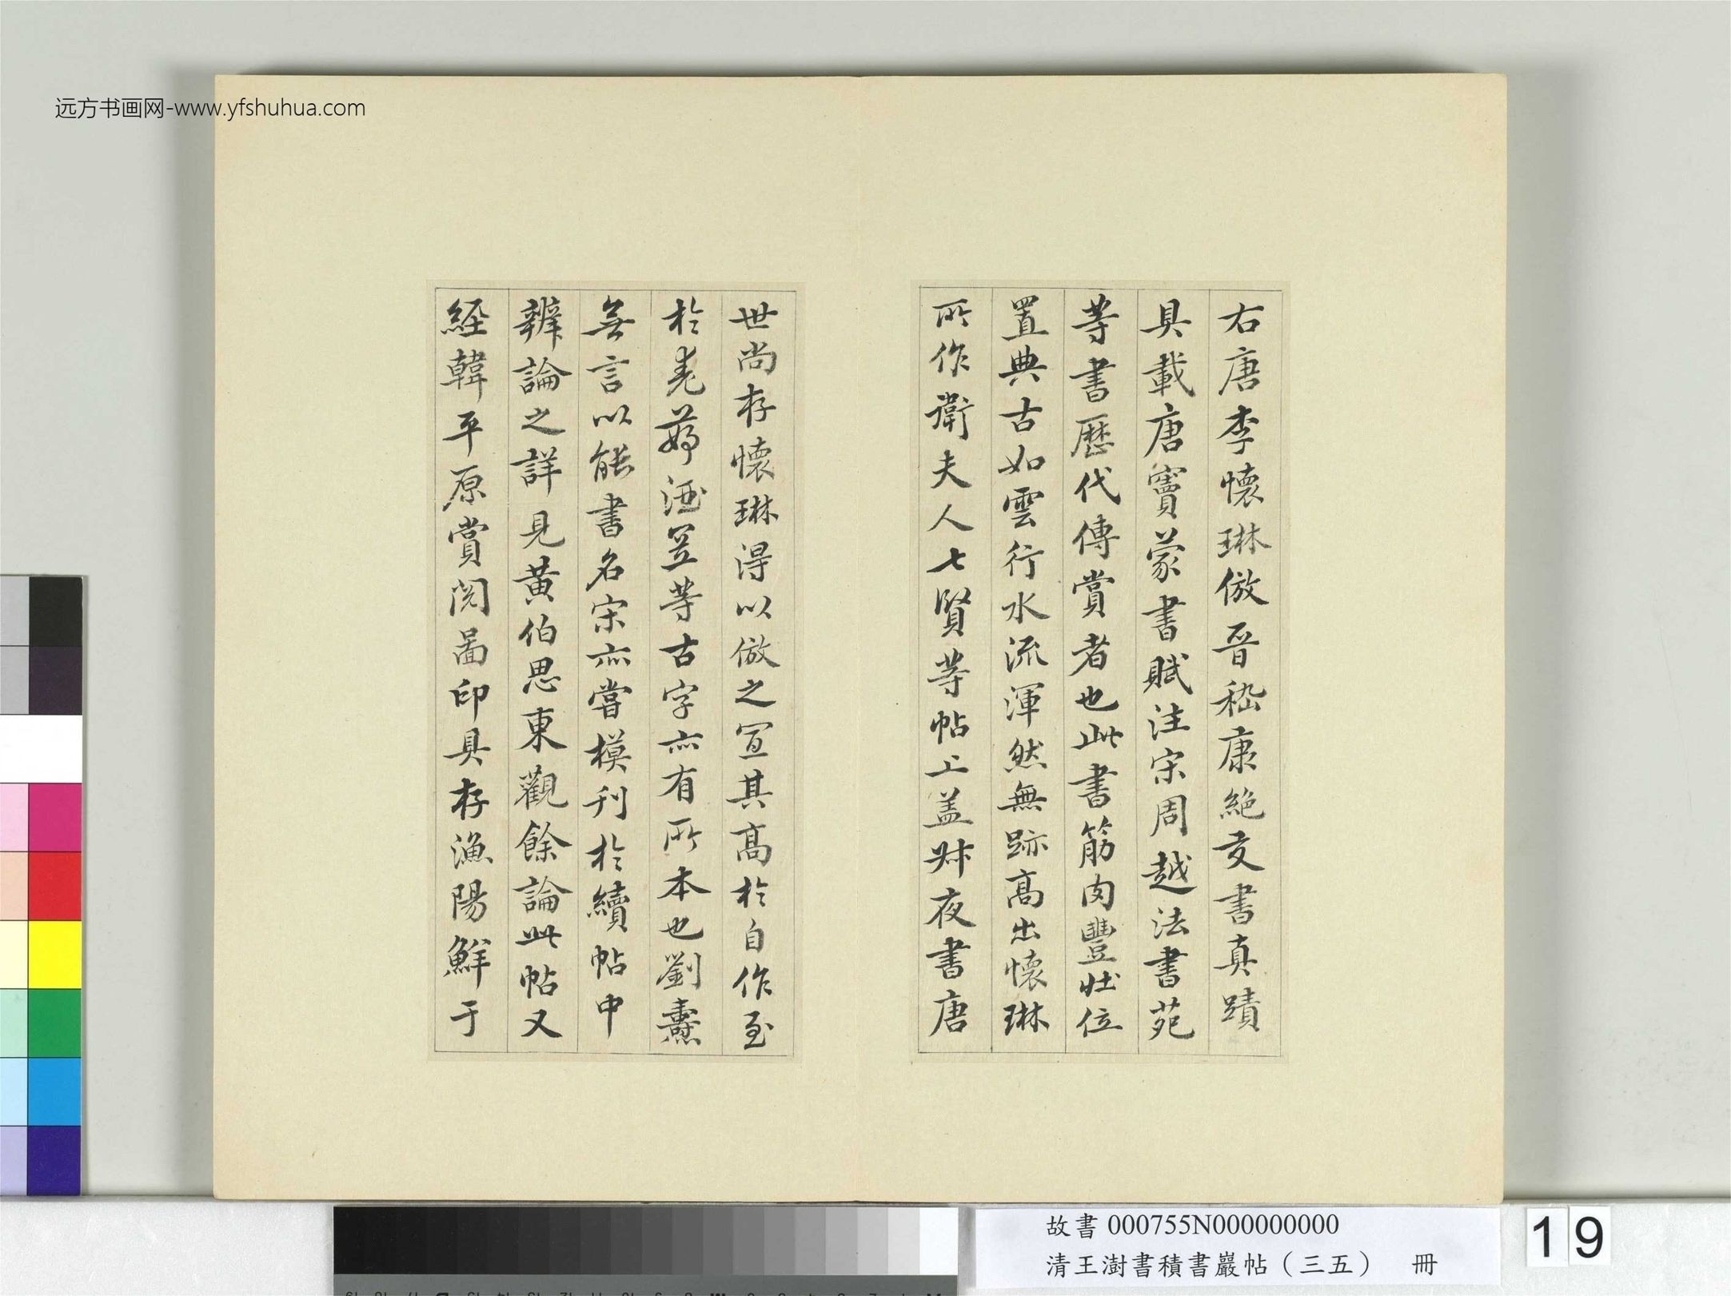 远方书画网-www.yfshuhua.com
右唐李懷琳倣晉嵇康絕交書真蹟
具載唐竇蒙書賦注宋周越法書苑
等書歷代傳賞者也此書筋肉豐壯位
置典古如雲行水流渾然無跡高出懷琳
所作衛夫人七賢等帖上蓋叔夜書唐
世尚存懷琳得以倣之宜其高於自作至
於等古字亦有所本也劉燾
無言以能書名宋亦嘗模刊於續帖中
辨論之詳見黃伯思東觀餘論此帖又
經韓平原賞閱圖印具存漁陽鮮于
故書 000755N000000000
清王澍書積書巖帖（三五） 冊
19